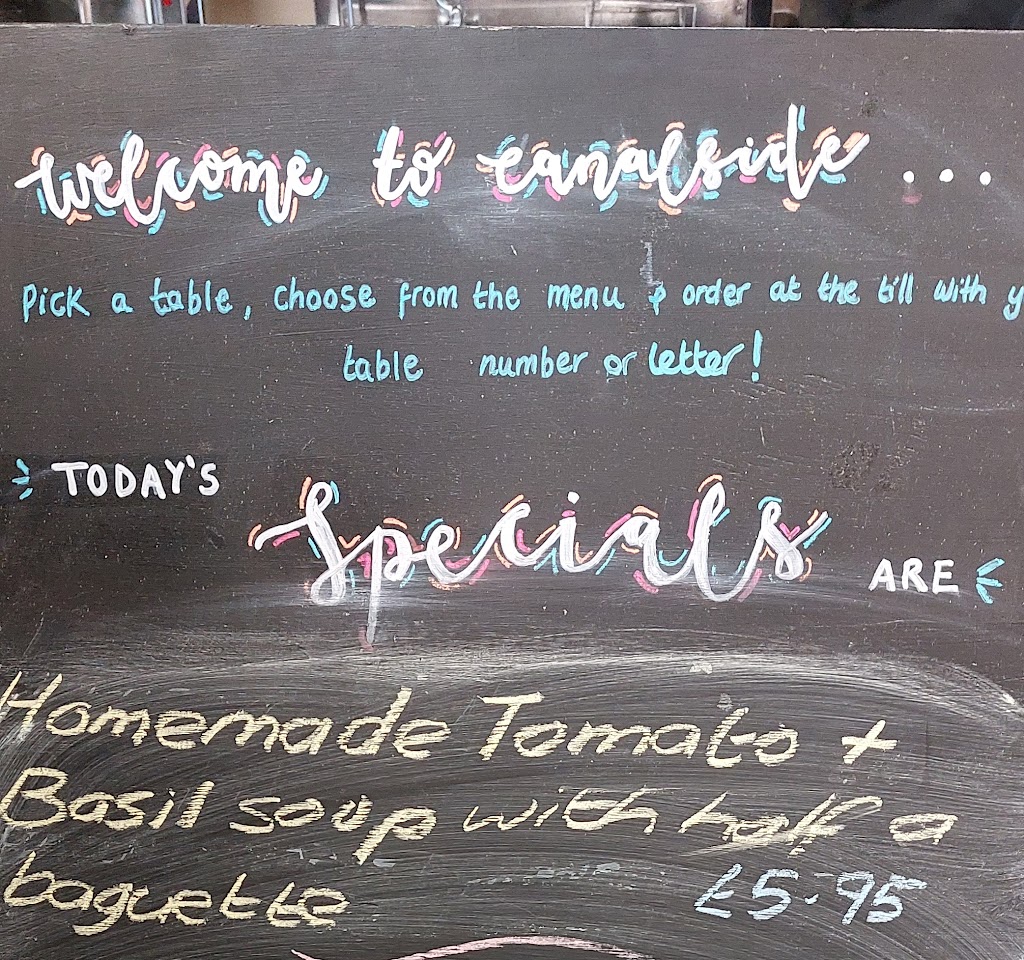 welcome to canalside ...
Pick a table, choose from the menu & order at the till with y
table number or letter!
TODAY'S
Specials
ARE
Homemade Tomato +
Basil soup with half a
baguette £5.95